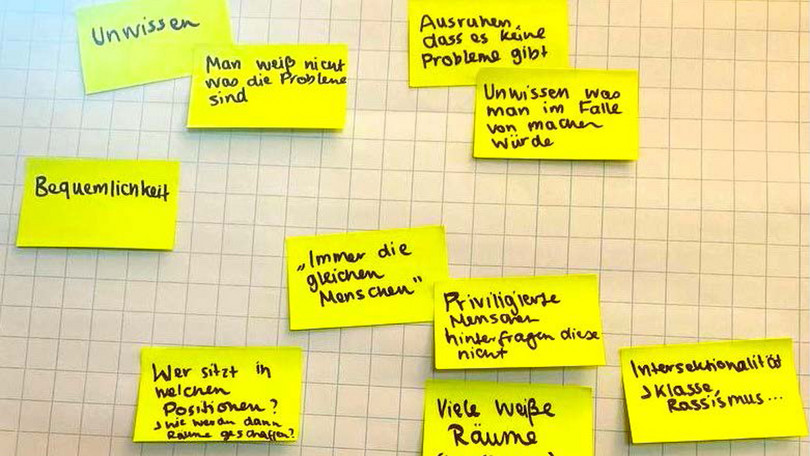 Unwissen
Man weiß nicht
was die Probleme
sind
Ausruhen,
dass es keine
Probleme gibt
Unwissen was
man im Falle
von machen
würde
Bequemlichkeit
„Immer die
gleichen
Menschen"
Priviligierte
Menschen
hinterfragen diese
nicht
Wer sitzt in
welchen
Positionen?
↳ wie werden dann
Räume geschaffen?
Viele weiße
Räume
Intersektionalität
↳ Klasse,
Rassismus...